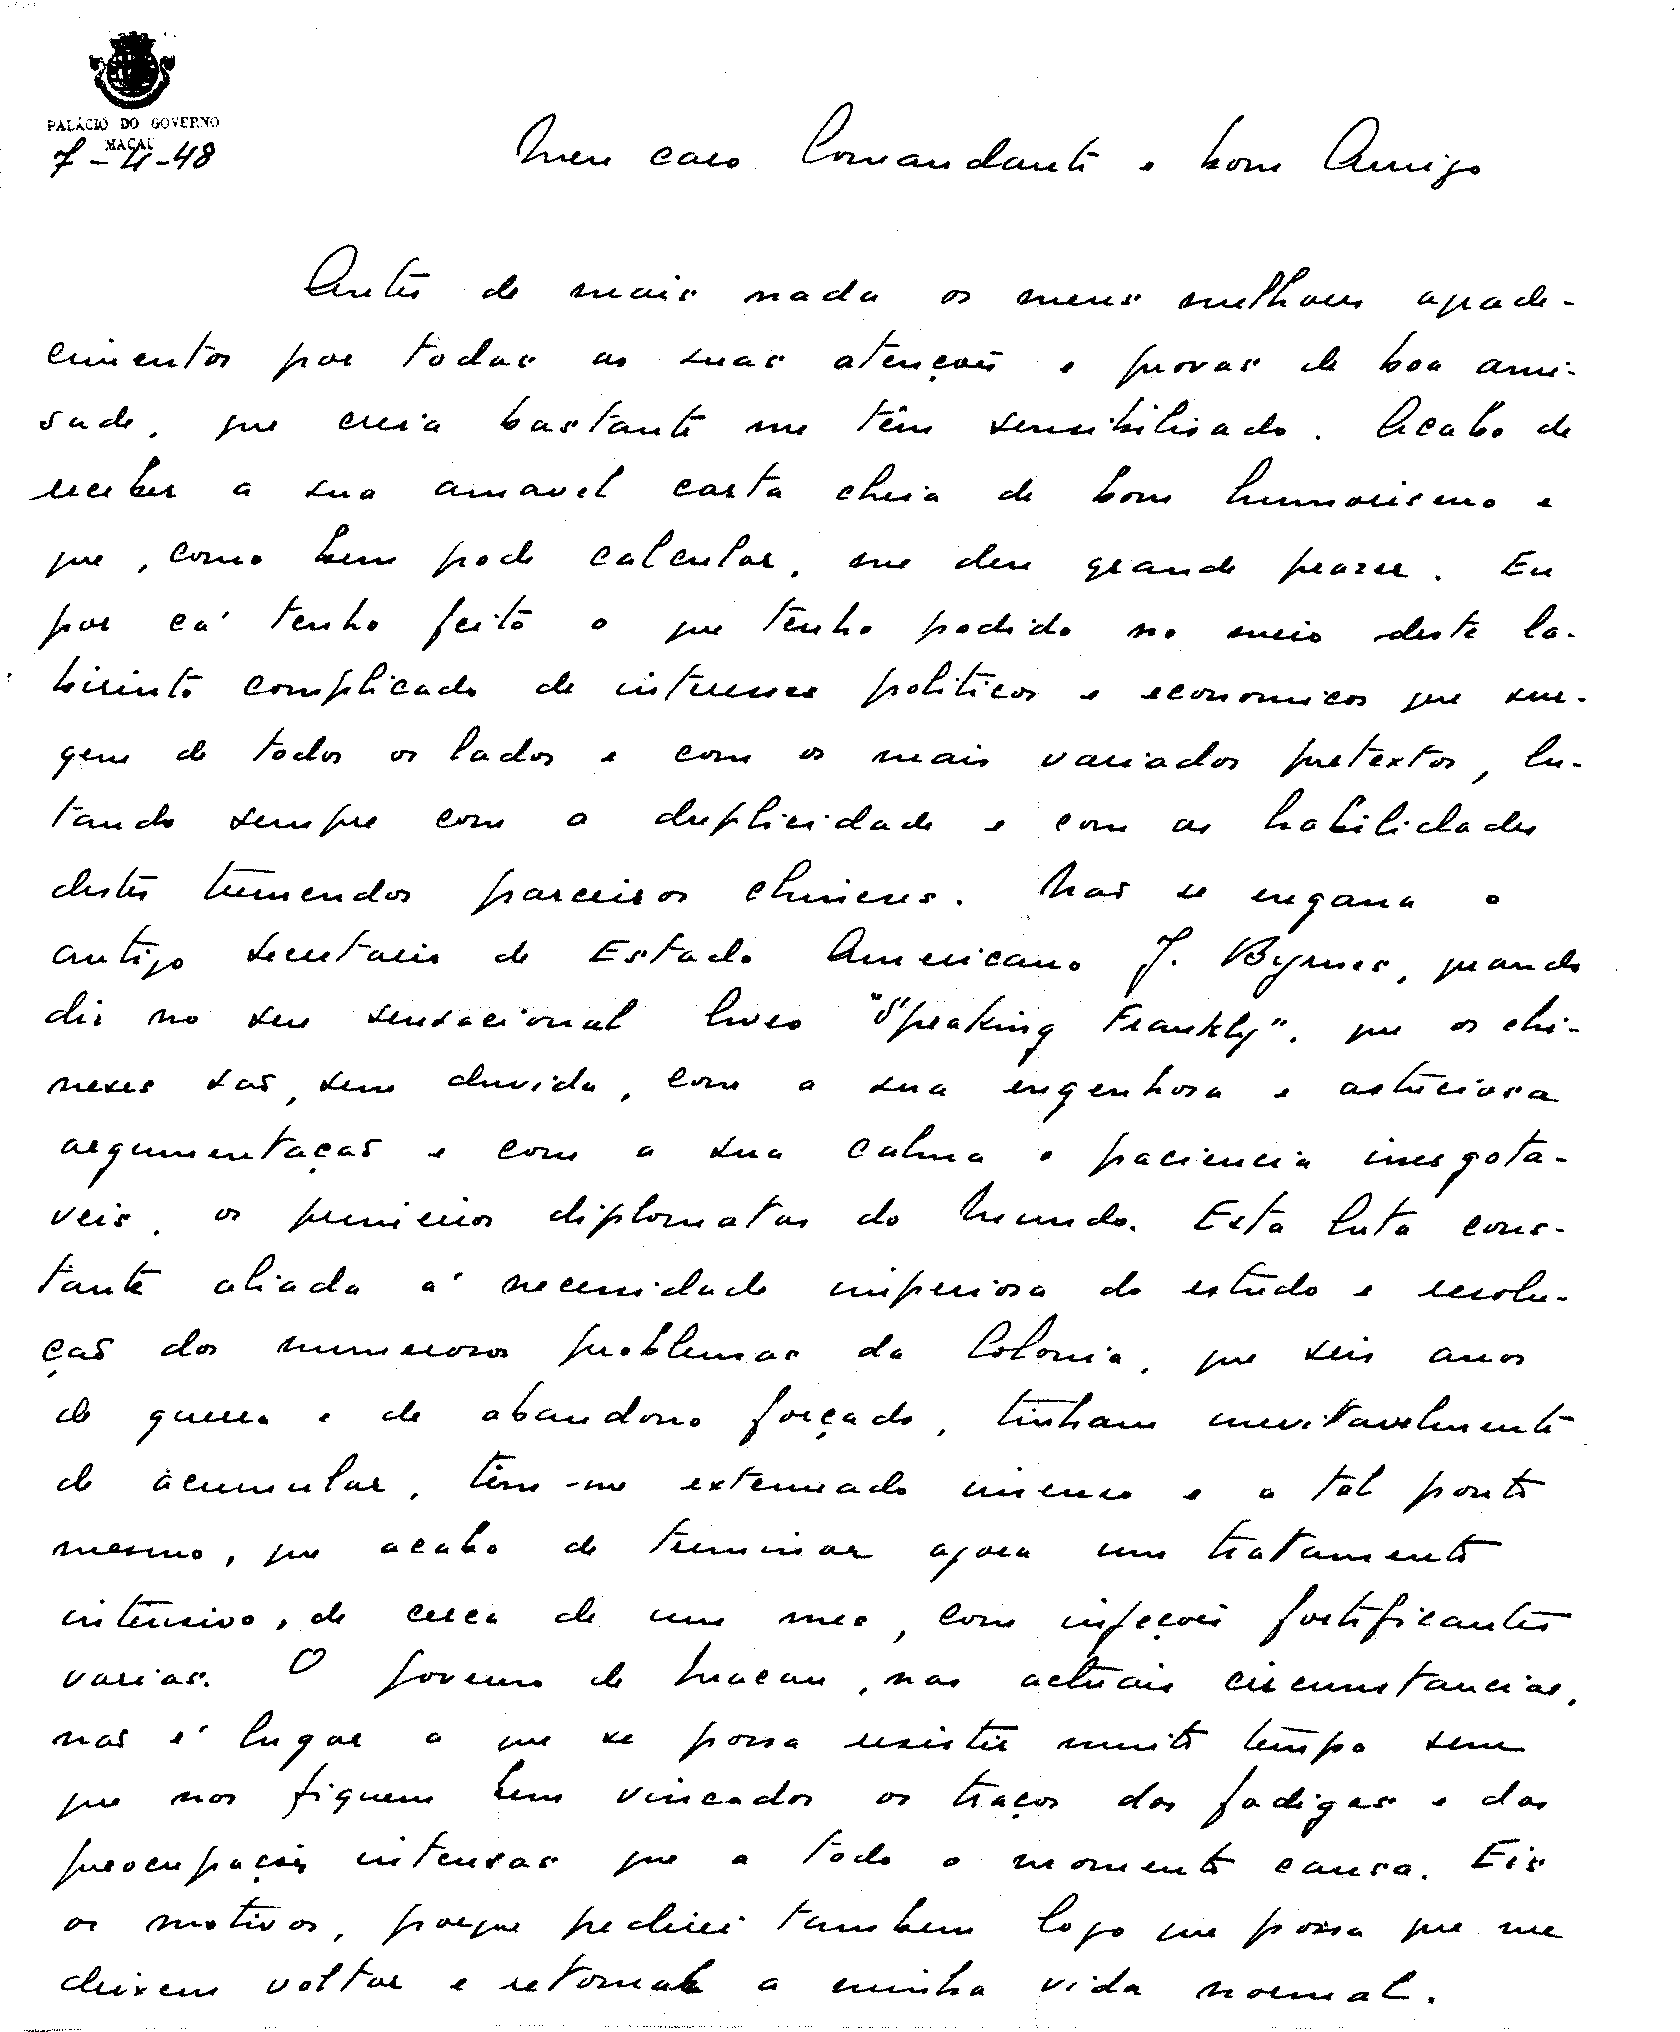 PALÁCIO DO GOVERNO
MACAU
7-4-48
Meu caro Comandante e bom Amigo
Antes de mais nada os meus melhores agrade-
cimentos por todas as suas atenções e provas de boa ami-
sade, que creia bastante me têm sensibilisado. Acabo de
receber a sua amavel carta cheia de bom humorismo e
que, como bem pode calcular, me deu grande prazer. Eu
por cá tenho feito o que tenho podido no meio deste la-
birinto complicado de interesses politicos e economicos que sur-
gem de todos os lados e com os mais variados pretextos, lu-
tando sempre com a duplicidade e com as habilidades
destes tremendos parceiros chineses. Não se engana o
antigo secretario de Estado Americano J. Byrnes, quando
diz no seu sensacional livro "Speaking Frankly", que os chi-
neses são, sem duvida, com a sua engenhosa e astuciosa
argumentação e com a sua calma e paciencia inesgota-
veis, os primeiros diplomatas do Mundo. Esta luta cons-
tante aliada á necessidade imperiosa do estudo e resolu-
ção dos numerosos problemas da Colonia, que seis anos
de guerra e de abandono forçado, tinham inevitavelmente
de acumular, têm-me extenuado imenso e a tal ponto
mesmo, que acabo de terminar agora um tratamento
intensivo, de cerca de um mes, com injeções fortificantes
varias. O Governo de Macau, nas actuais circumstancias,
não é lugar a que se possa resistir muito tempo sem
que nos fiquem bem vincados os traços das fadigas e das
preocupações intensas que a todo o momento causa. Eis
os motivos, porque pedirei tambem logo que possa que me
deixem voltar e retomar a minha vida normal.